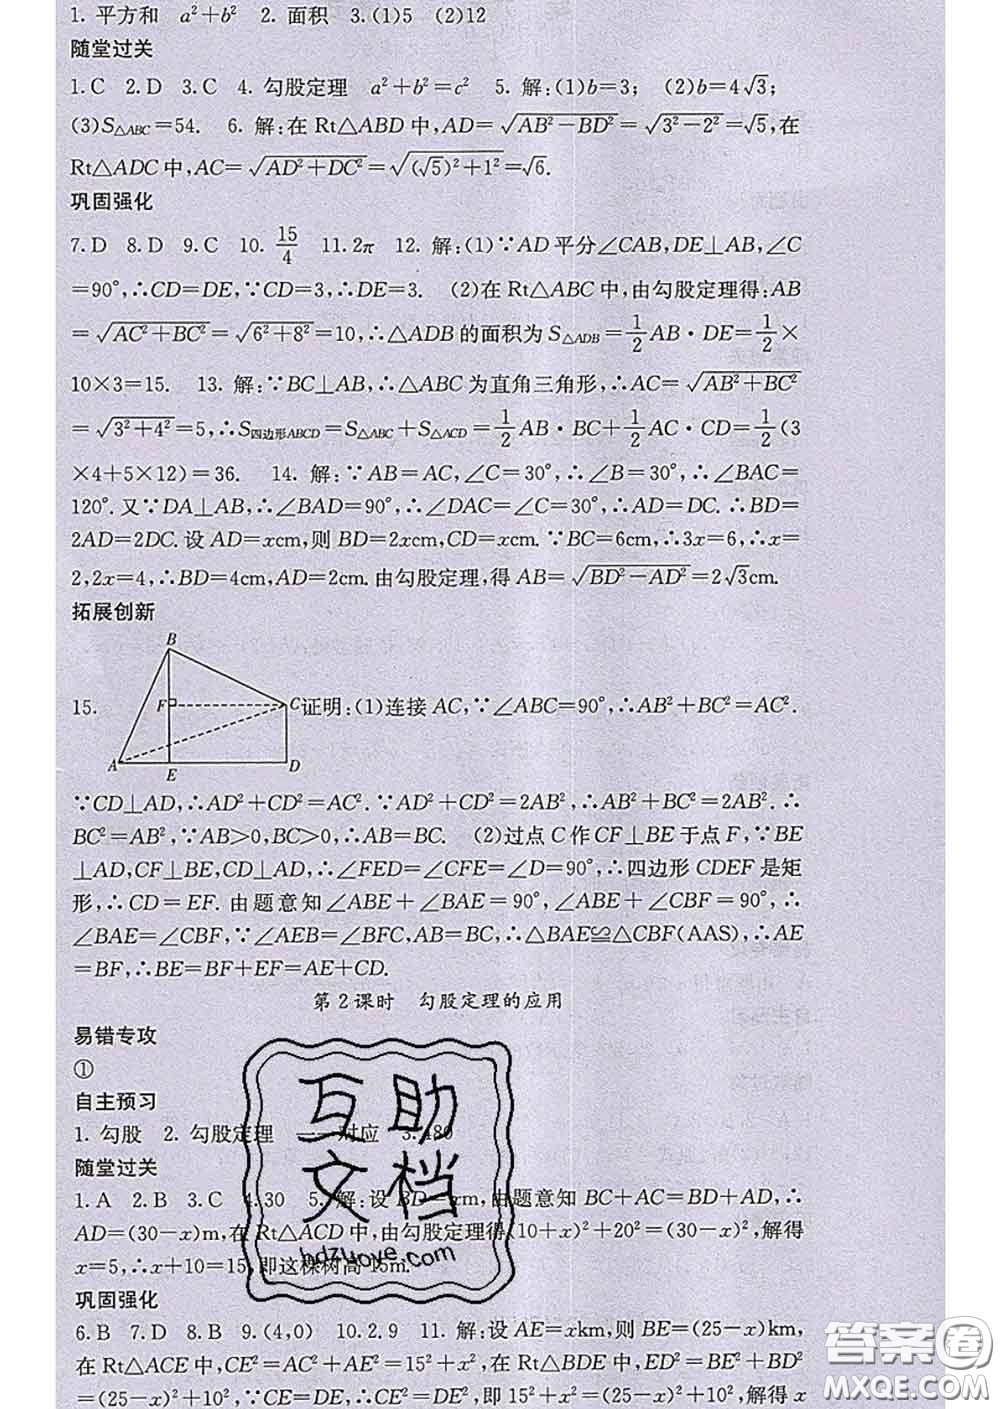 1. 平方和　a²+b²　2. 面积　3.(1)5　(2)12
随堂过关
1.C　2.D　3.C　4. 勾股定理　a²+b²=c²　5. 解:(1)b=3;　(2)b=4√3;
(3)S△ABC=54.　6. 解:在 Rt△ABD 中,AD=√(AB²-BD²)=√(3²-2²)=√5,在
Rt△ADC 中,AC=√(AD²+DC²)=√((√5)²+1²)=√6.
巩固强化
7.D　8.D　9.C　10. 15/4　11.2π　12. 解:(1)∵AD 平分∠CAB,DE⊥AB,∠C
=90°,∴CD=DE,∵CD=3,∴DE=3.　(2)在 Rt△ABC 中,由勾股定理得:AB
=√(AC²+BC²)=√(6²+8²)=10,∴△ADB 的面积为 S△ADB=1/2 AB·DE=1/2×
10×3=15.　13. 解:∵BC⊥AB,∴△ABC 为直角三角形,∴AC=√(AB²+BC²)
=√(3²+4²)=5,∴S四边形ABCD=S△ABC+S△ACD=1/2 AB·BC+1/2 AC·CD=1/2(3
×4+5×12)=36.　14. 解:∵AB=AC,∠C=30°,∴∠B=30°,∴∠BAC=
120°.又∵DA⊥AB,∴∠BAD=90°,∴∠DAC=∠C=30°,∴AD=DC.∴BD=
2AD=2DC.设 AD=xcm,则 BD=2xcm,CD=xcm.∵BC=6cm,∴3x=6,∴x=
2,2x=4,∴BD=4cm,AD=2cm.由勾股定理,得 AB=√(BD²-AD²)=2√3cm.
拓展创新
B
15.　F　C　证明:(1)连接 AC,∵∠ABC=90°,∴AB²+BC²=AC².
A　E　D
∵CD⊥AD,∴AD²+CD²=AC².∵AD²+CD²=2AB²,∴AB²+BC²=2AB².∴
BC²=AB²,∵AB>0,BC>0,∴AB=BC.　(2)过点 C 作 CF⊥BE 于点 F,∵BE
⊥AD,CF⊥BE,CD⊥AD,∴∠FED=∠CFE=∠D=90°,∴四边形 CDEF 是矩
形,∴CD=EF.由题意知∠ABE+∠BAE=90°,∠ABE+∠CBF=90°,∴
∠BAE=∠CBF,∵∠AEB=∠BFC,AB=BC,∴△BAE≌△CBF(AAS),∴AE
=BF,∴BE=BF+EF=AE+CD.
第 2 课时　勾股定理的应用
易错专攻
①
自主预习
1. 勾股　2. 勾股定理　一一对应　3.480
随堂过关
1.A　2.B　3.C　4.30　5. 解:设 BD=xm,由题意知 BC+AC=BD+AD,∴
AD=(30-x)m,在 Rt△ACD 中,由勾股定理得(10+x)²+20²=(30-x)²,解得
x=5,∴x+10=15,即这棵树高 15m.
巩固强化
6.B　7.D　8.B　9.(4,0)　10.2.9　11. 解:设 AE=xkm,则 BE=(25-x)km,
在 Rt△ACE 中,CE²=AC²+AE²=15²+x²,在 Rt△BDE 中,ED²=BE²+BD²
=(25-x)²+10²,∵CE=DE,∴CE²=DE²,即 15²+x²=(25-x)²+10²,解得 x
互助
文档
hdzuoye.com
答案圈
MXQE.COM